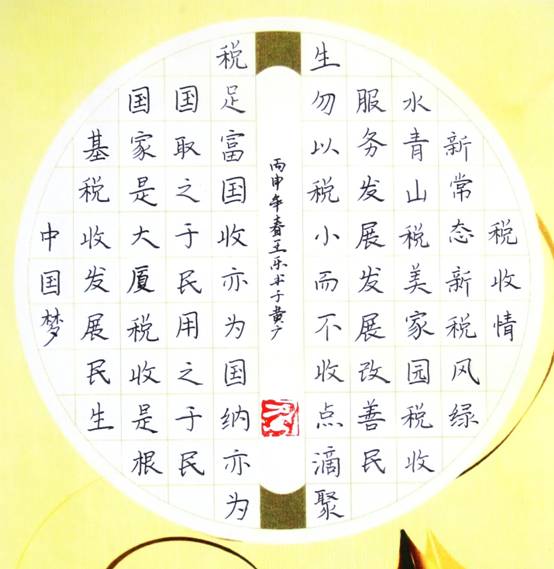 税收情
新常态新税风绿
水青山税美家园税收
服务发展发展改善民
生勿以税小而不收点滴聚
税足富国收亦为国纳亦为
国取之于民用之于民
国家是大厦税收是根
基税收发展民生
中国梦
丙申年春王乐于黄